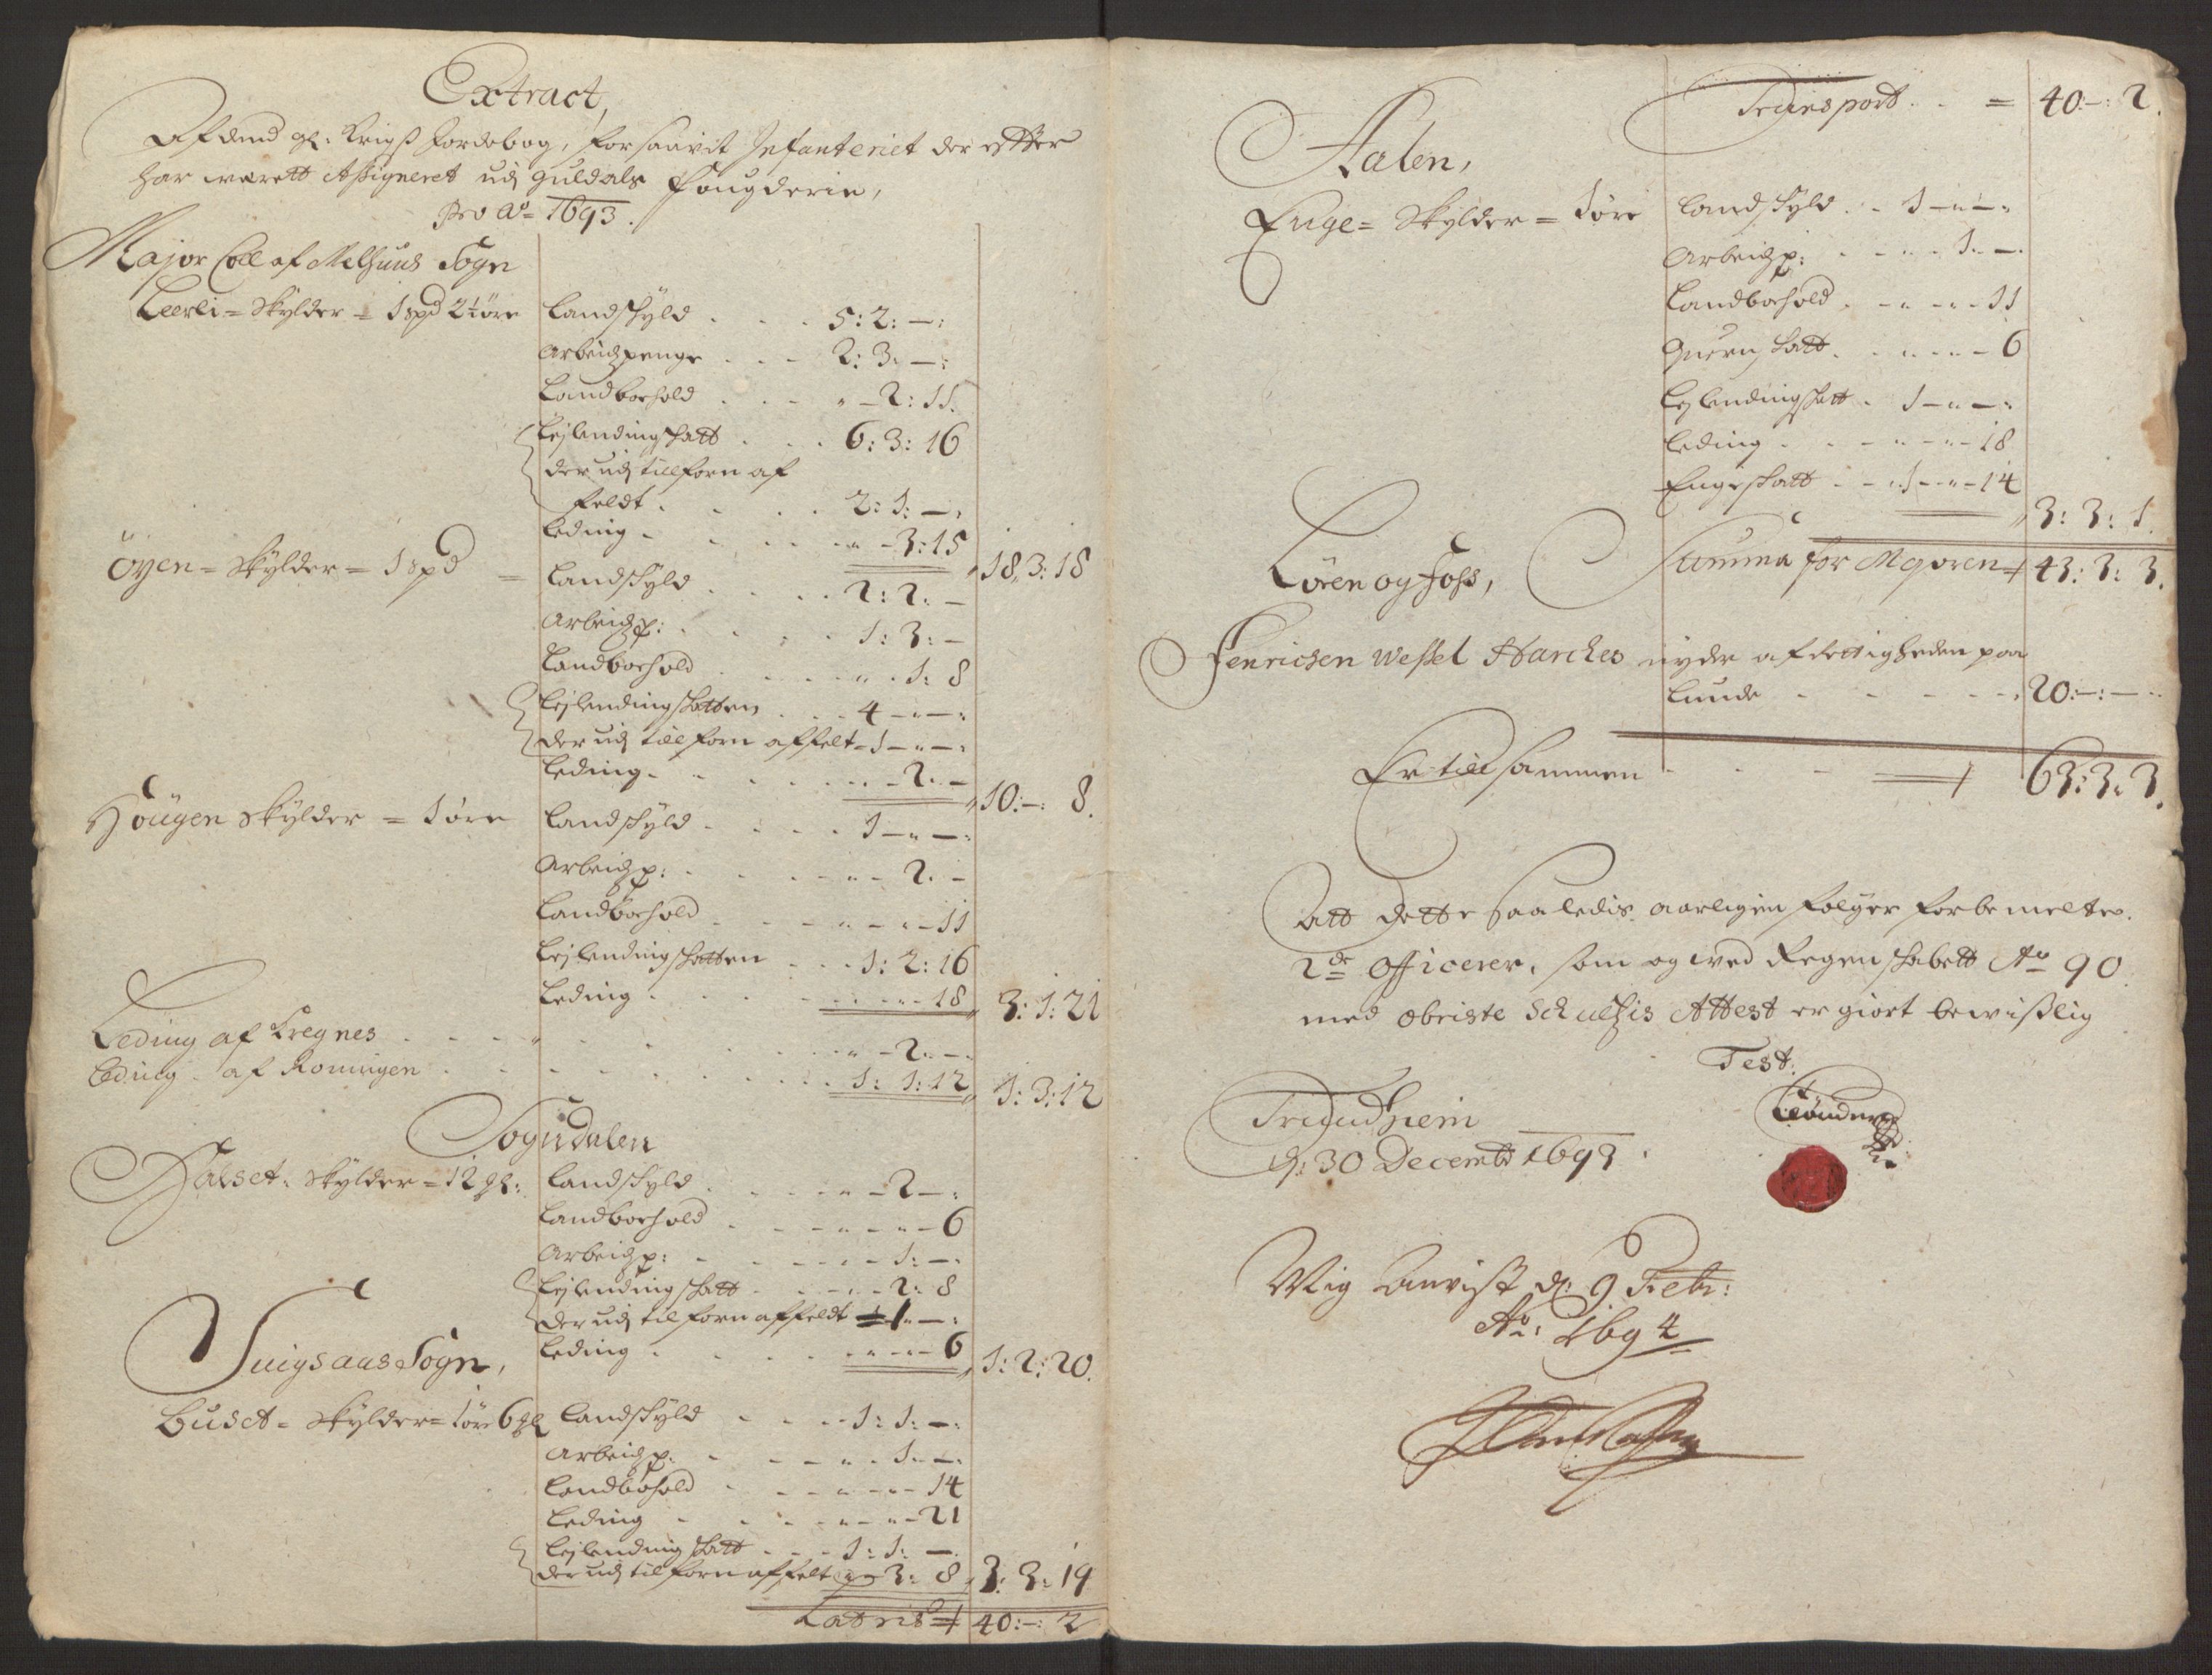 Extract,
Af dend gl: Krigs Jordebog, forsaavit Infanteriet der efter
har werett Assigneret udj Guldals Fougderie,
Pro Ao= 1693.
Major Coll af Melhuus Sogn
Leerli = Skylder = 1 spd 2½ øre
Landskyld . . . 5: 2: —:
Arbeidzpenge . . . 2: 3: —:
Landboehold . . . " — 2: 11.
Lejlendingskatt . . . 6: 3: 16
der udj tillforn af
feldt . . . 2: 1: —:
Leding . . . " — 3: 15
18: 3: 18
Öyen = Skylder = 1 spd =
Landskyld . . . 2: 2: —
Arbeidzp: . . . 1: 3: —
Landboehold . . . " 1: 8
Lejlendingskatten . . . 4 — " — :
der udj tillforn affelt = 1 — " — :
Leding . . . — 2: —
10: —: 8.
Hougen Skylder = 1 øre
Landskyld . . . 1 — " — :
Arbeidzp: . . . " — 2. —
Landboehold . . . " — " — 11
Lejlendingskatten . . . 1: 2: 16
Leding . . . " — " — 18
3: 1: 21
Leding af Kregnes . . . " — 2: —.
Leding af Romigen . . . 1: 1: 12
1: 3: 12
Sogndalen
Halset: Skylder = 12 gl:
Landskyld . . . " — 2 — :
Landboehold . . . " — " — 6
Arbeidzp: . . . — 1: —.
Lejlendingskatt . . . — 2: 8
der udj tilforn affeldt 1 " — :
Leding . . . " — " — 6
1: 2: 20.
Singsaas Sogn,
Buset = Skylder = 1 øre 6 gl
Landskyld . . . 1: 1: —:
Arbeidzp: . . . " . 1: —:
Landbohold . . . " — " — 14
Leding . . . " — " — 21
Lejlending skatt . . . 1: 1: —.
der udj tilforn affelt " — 3: 8
3: 3: 19
Lateris 40: —: 2
Transport . . = 40: —: 2.
Aalen,
Enge = Skylder = 1 øre
Landskyld . . 1 — " — :
Arbeidzp: . . . 1. —.
Landboehold . . . 11
Quern skatt . . . 6
Lejlendingskatt . 1 — " — :
Leding . . . 18
Engeskatt . . " 1 — " — 14
3: 3: 1.
Summa for Majoren 43: 3: 3.
Løren og Foss,
Fenrichen Wessel nyder af Rettigheden paa
Lunde . . . 20: —: —
Er till sammen . . . 63: 3: 3.
Att dette saaledis aarligen følger forbemelte
2de Officerer, som og wed Regenskabett Ao 90
med Obriste Schultzis Attest er giort bewislig
Test.
Trundhiem
d: 30 Decembr 1693.
Tønder
Mig Anvist d: 9 Febr:
Ao: 1694